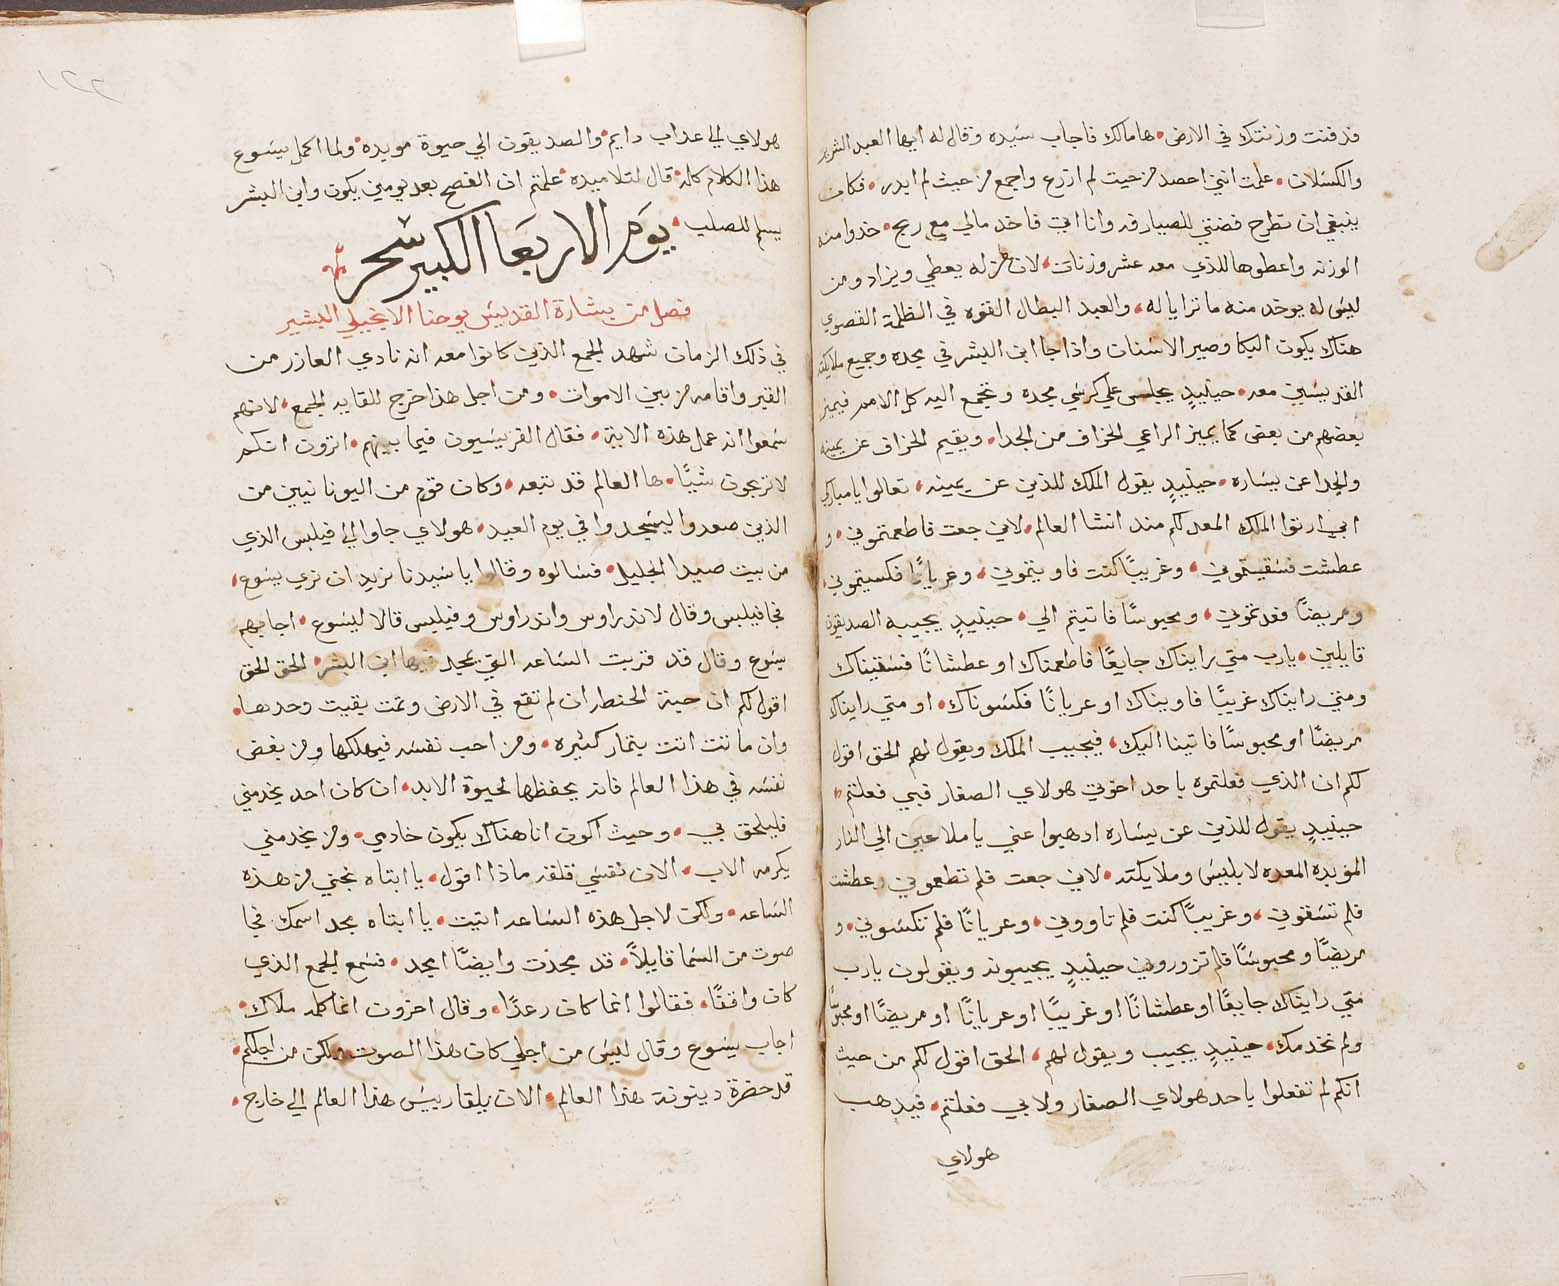 قد فنت وزنتك في الارض • هامالك فاجاب سيده وقال له ايها العبد الشرير
والكسلان • علمت انني احصد من حيت لم ازرع واجمع من حيث لم ابدر • فكان
ينبغي ان تطرح فضتي للصيارفه وانا اتي فاخد مالي مع ربح • خدوا منه
الوزنه واعطوها للذي معه عشر وزنات • لان من له يعطي ويزاد ومن
ليس له يوخد منه ما ترايا له • والعبد البطال القوه في الظلمة القصوي
هناك يكون البكا وصرير الاسنان واذا جا ابن البشر في مجده وجميع ملايكته
القديسين معه • حينيدٍ يجلس علي كرسي مجده وتجمع اليه كل الامم فيميز
بعضهم من بعض كما يميز الراعي الخراف من الجدا • ويقيم الخراف عن يمينه
والجدا عن يساره • حينيدٍ يقول الملك للذين عن يمينه • تعالوا يا مباركي
ابي ارتوا الملك المعد لكم مند انشا العالم • لاني جعت فاطعمتموني • و
عطشت فسقيتموني • وغريبًا كنت فاويتموني • وعريانًا فكسيتموني •
ومريضًا فعدتموني • ومحبوسًا فاتيتم الي • حينيدٍ يجيبه الصديقون
قايلين • يارب متي رايناك جايعًا فاطعمناك او عطشانًا فسقيناك
ومتي رايناك غريبًا فاويناك او عريانًا فكسوناك • او متي رايناك
مريضًا او محبوسًا فاتينا اليك • فيجيب الملك ويقول لهم الحق اقول
لكم ان الذي فعلتموه باحد اخوتي هولاي الصغار فبي فعلتم •
حينيدٍ يقول للذين عن يساره ادهبوا عني يا ملاعين الي النار
الموبده المعده لابليس وملايكته • لاني جعت فلم تطعموني وعطشت
فلم تسقوني • وغريبًا كنت فلم تاووني • وعريانًا فلم تكسوني • و
مريضًا ومحبوسًا فلم تزوروني حينيدٍ يجيبونه ويقولون يارب
متي رايناك جايعًا او عطشانًا او غريبًا او عريانًا او مريضًا او محبوسًا
ولم نخدمك • حينيدٍ يجيب ويقول لهم • الحق اقول لكم من حيث
انكم لم تفعلوا باحد هولاي الصغار ولابي فعلتم • فيدهب
هولاي
٢٢١
هولاي الي عداب دايم • والصديقون الي حيوة موبده • ولما اكمل يسوع
هذا الكلام كله • قال لتلاميده علمتم ان الفصح بعد يومين يكون وابن البشر
يسلم للصلب •
يوم الاربعا الكبير سحر
فصل من بشارة القديس يوحنا الانجيلي البشير
في ذلك الزمان شهد الجمع الذين كانوا معه انه نادي العازر من
القبر واقامه من بين الاموات • ومن اجل هذا خرج للقايه الجمع • لانهم
سمعوا انه عمل هذه الاية • فقال الفريسيون فيما بينهم • اترون انكم
لا تربحون شيًا • ها العالم قد تبعه • وكان قوم من اليونانيين من
الذين صعدوا ليسجدوا في يوم العيد • هولاي جاوا الي فيلبس الذي
من بيت صيدا الجليل • فسالوه وقالوا يا سيدنا نريد ان نري يسوع •
فجا فيلبس وقال لاندراوس واندراوس وفيلبس قالا ليسوع • اجابهم
يسوع وقال قد قربت الساعه التي يمجد فيها ابن البشر • الحق الحق
اقول لكم ان حبة الحنطه ان لم تقع في الارض وتمت بقيت وحدها •
وان ماتت اتت بثمار كثيره • ومن احب نفسه فيهلكها ومن بغض
نفسه في هذا العالم فانه يحفظها لحيوة الابد • ان كان احد يخدمني
فليلحق بي • وحيث اكون انا هناك يكون خادمي • ومن يخدمني
يكرمه الاب • الان نفسي قلقه ماذا اقول • يا ابتاه نجني من هذه
الساعه • ولكن لاجل هذه الساعه اتيت • يا ابتاه مجد اسمك فجا
صوت من السما قايلاً • قد مجدت وايضًا امجد • فسمع الجمع الذي
كان واقفًا • فقالوا انما كان رعدًا • وقال اخرون انما كلمه ملاك •
اجاب يسوع وقال ليس من اجلي كان هذا الصوت ولكن من اجلكم •
قد حضرة دينونة هذا العالم • الان يلقا رييس هذا العالم الي خارج •